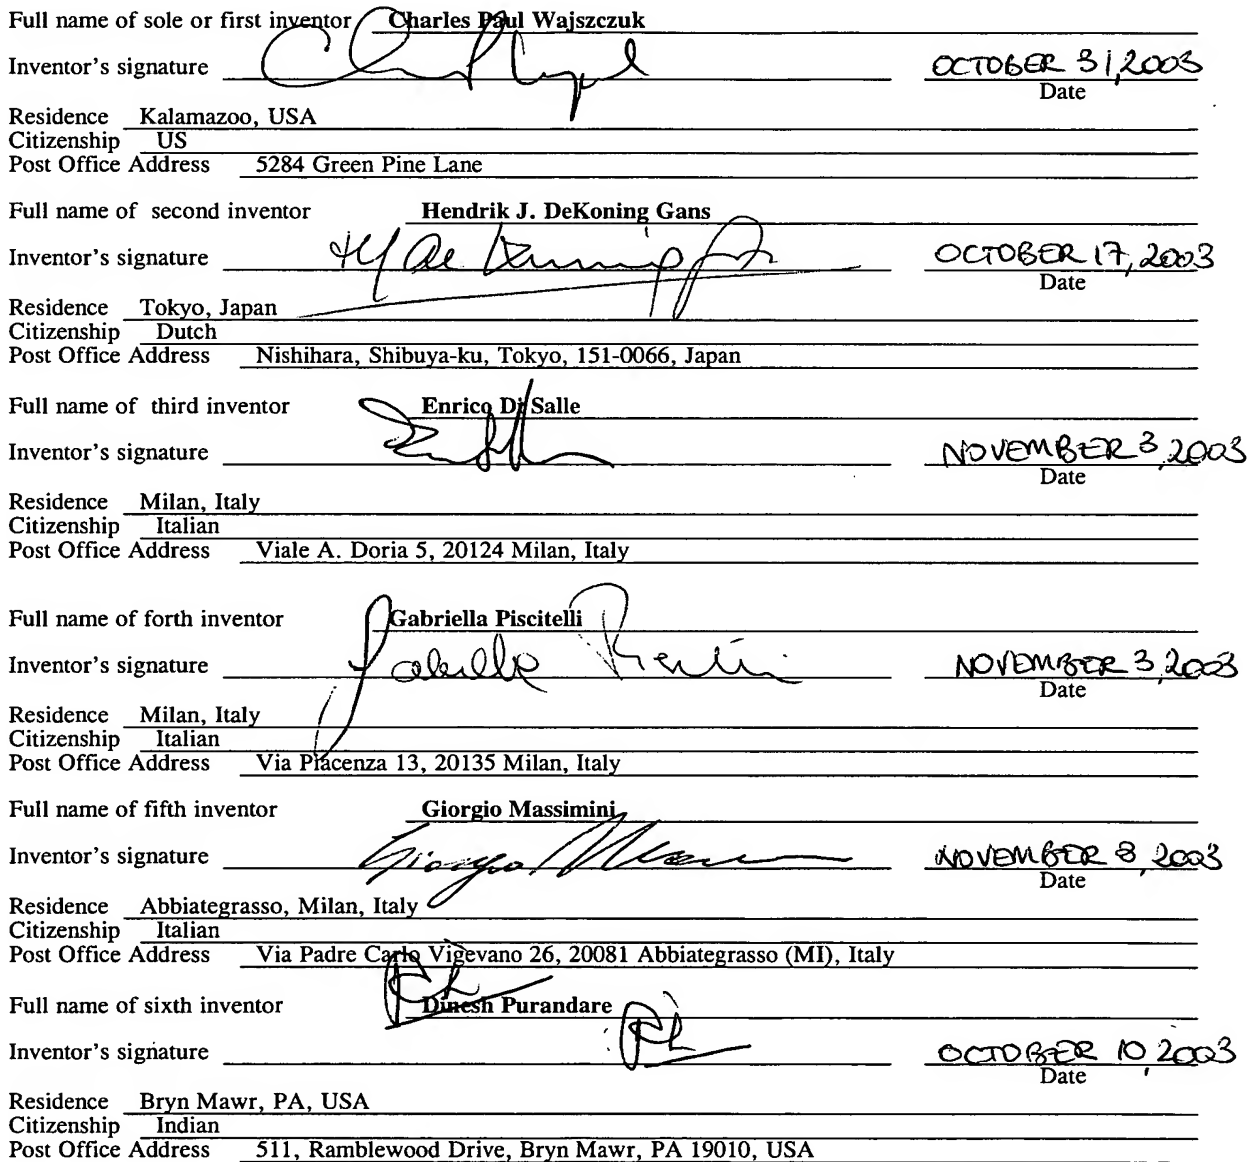 Full name of sole or first inventor Charles Paul Wajszczuk
Inventor's signature OCTOBER 31, 2003
Date
Residence Kalamazoo, USA
Citizenship US
Post Office Address 5284 Green Pine Lane
Full name of second inventor Hendrik J. DeKoning Gans
Inventor's signature OCTOBER 17, 2003
Date
Residence Tokyo, Japan
Citizenship Dutch
Post Office Address Nishihara, Shibuya-ku, Tokyo, 151-0066, Japan
Full name of third inventor Enrico Di Salle
Inventor's signature NOVEMBER 3, 2003
Date
Residence Milan, Italy
Citizenship Italian
Post Office Address Viale A. Doria 5, 20124 Milan, Italy
Full name of forth inventor Gabriella Piscitelli
Inventor's signature NOVEMBER 3, 2003
Date
Residence Milan, Italy
Citizenship Italian
Post Office Address Via Piacenza 13, 20135 Milan, Italy
Full name of fifth inventor Giorgio Massimini
Inventor's signature Giorgio NOVEMBER 8, 2003
Date
Residence Abbiategrasso, Milan, Italy
Citizenship Italian
Post Office Address Via Padre Carlo Vigevano 26, 20081 Abbiategrasso (MI), Italy
Full name of sixth inventor Dinesh Purandare
Inventor's signature OCTOBER 10, 2003
Date
Residence Bryn Mawr, PA, USA
Citizenship Indian
Post Office Address 511, Ramblewood Drive, Bryn Mawr, PA 19010, USA